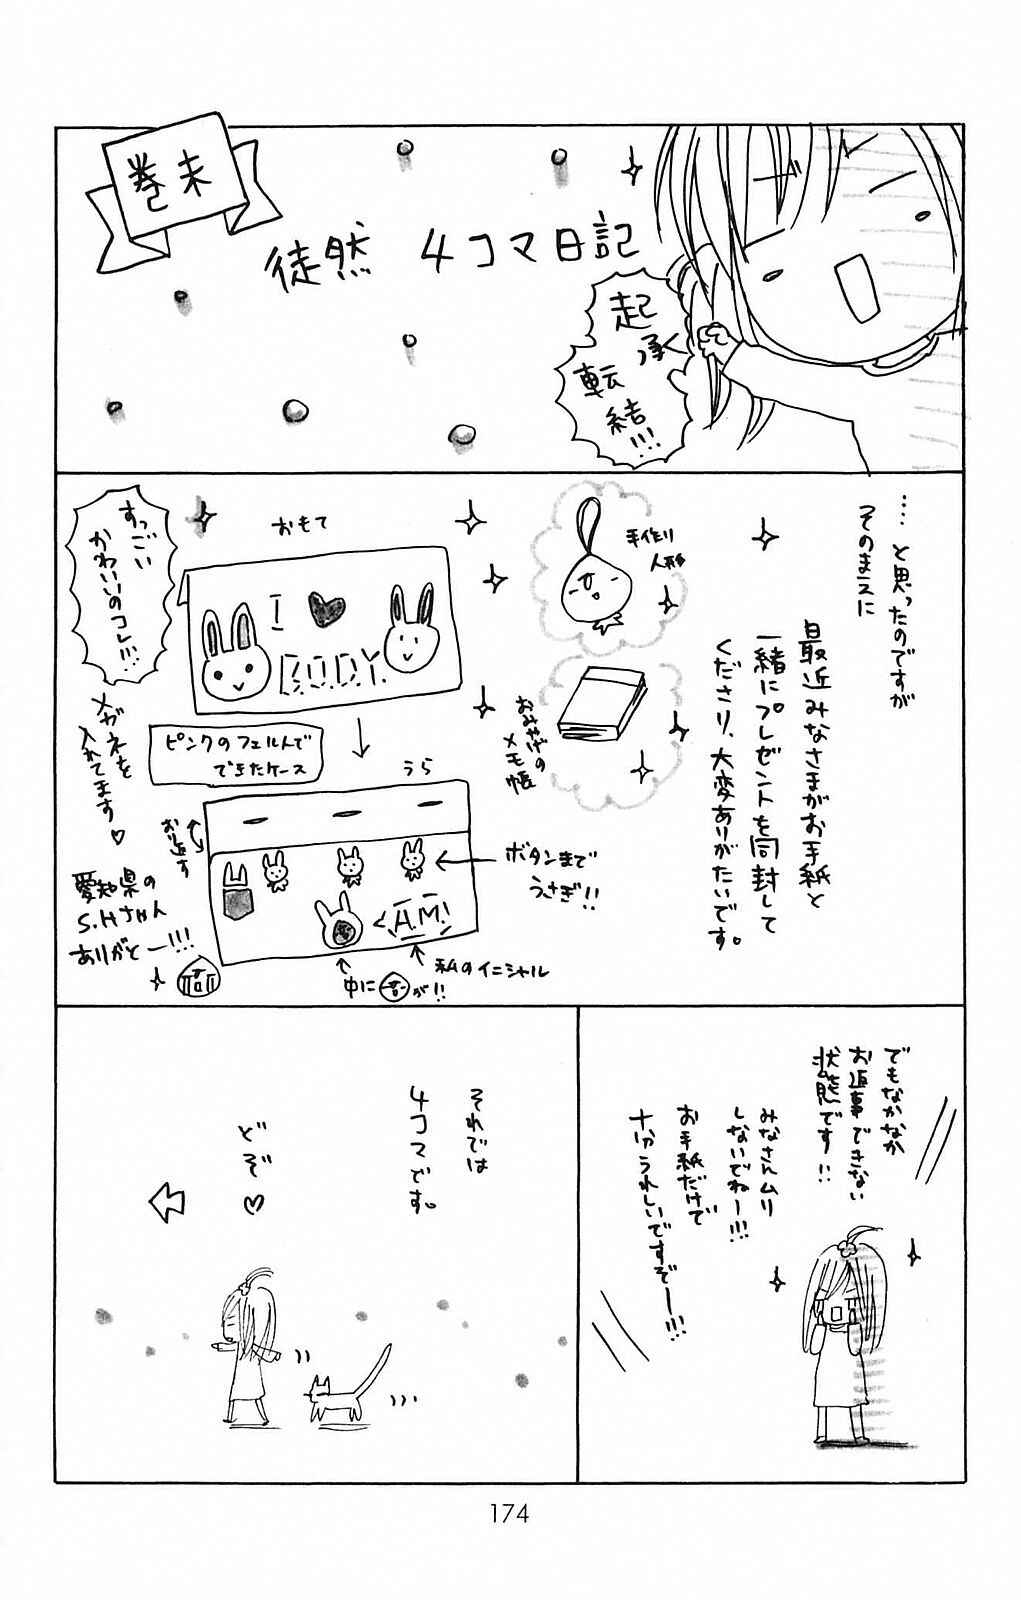 巻末
徒然 4コマ日記
起承
転結!!!
…と思ったのですが
そのまえに
最近みなさまがお手紙と
一緒にプレゼントを同封して
くださり、大変ありがたいです。
手作り
人形
おみやげの
メモ帳
おもて
I ♥
BODY
すっごい
かわいいのコレ!!!
メガネを
入れてます♡
ピンクのフェルトで
できたケース
うら
お返す
ボタンまで
うさぎ!!
A.M!
私のイニシャル
中に
が!!
愛知県の
S.Hちゃん
ありがとー!!!
でもなかなか
お返事できない
状態です!!
みなさんムリ
しないでねー!!!
お手紙だけで
十分うれしいですぞー!!!
それでは
4コマです。
どぞ♡
174